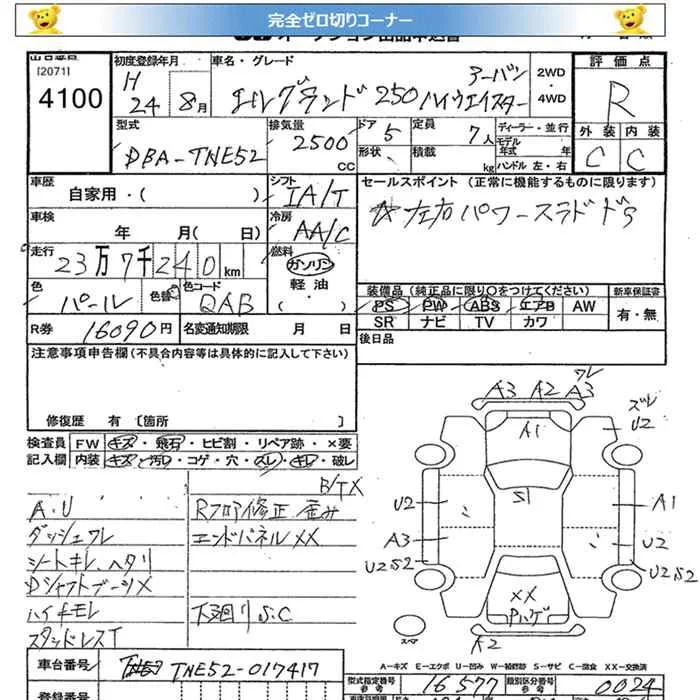 完全ゼロ切りコーナー
[2071]
4100
初度登録年月
H
24 8月
車名・グレード
アーバン
エルグランド 250 ハイウェイスター
2WD
・
4WD
評価点
R
外装 内装
C C
型式
DBA-TNE52
排気量
2500
CC
ドア 5
形状
定員 7人
積載 kg
ディーラー・並行
モデル
年式 年
ハンドル 左・右
車歴
自家用・( )
シフト
IA/T
セールスポイント (正常に機能するものに限ります)
左右パワースラドドS
車検
年 月( 日)
冷房
AA/C
走行
23万7千240km
燃料
ガソリン
軽油
( ・ )
色
パール
色替
色コード
QAB
装備品(純正品に限り○をつけてください)
PS PW ABS エアB AW
SR ナビ TV カワ
新車保証書
有・無
R券 16090円
名変通知期限 月 日
後日品
注意事項申告欄(不具合内容等は具体的に記入して下さい)
修復歴 有〔箇所 〕
検査員 FW キズ・飛石・ヒビ割・リペア跡・×要
記入欄 内装 キズ・汚れ・コゲ・穴・スレ・キレ・破レ
B/TX
A・U
Rフロア修正 歪み
ダッシュワレ
エンドパネルXX
シートキレ、ヘタリ
DシャフトブーツX
ハイキモレ
下廻りS.C
スタッドレスT
ワレ
A3 A2 A3
ズレ
U2
A1
S1
U2
A1
A3
U2
U2S2
U2S2
XX
Pハゲ
スペア
A2
A-キズ E-エクボ U-凹み W-補修跡 S-サビ C-腐食 XX-交換済
車台番号
TNE52-017417
型式指定番号
参考
16577
類別区分番号
参考
0024
登録番号